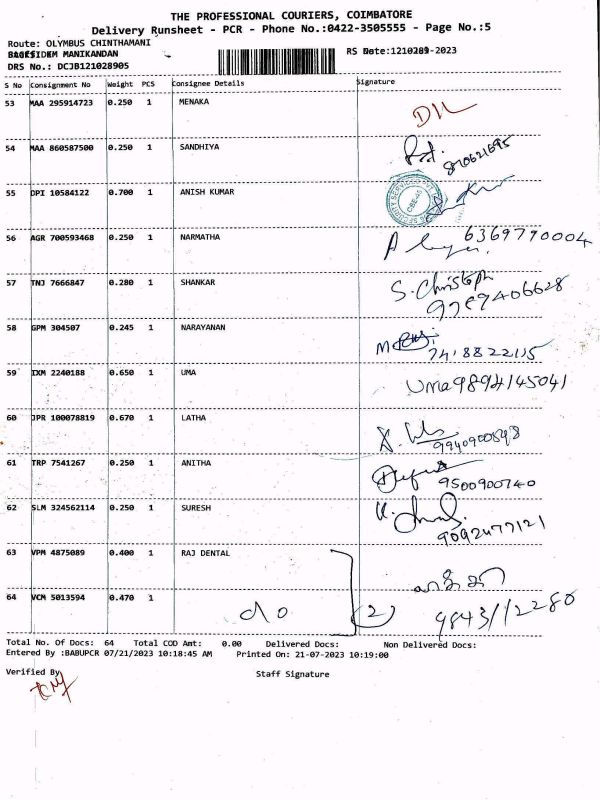 THE PROFESSIONAL COURIERS, COIMBATORE
Delivery Runsheet - PCR - Phone No.:0422-3505555 - Page No.:5
Route: OLYMBUS CHINTHAMANI
MANIKANDAN
RS
DRS No.: DCJB121028905
S No Consignment No Weight PCS Consignee Details Signature
53 MAA 295914723 0.250 1 MENAKA
54 MAA 860587500 0.250 1 SANDHIYA
55 DPI 10584122 0.700 1 ANISH KUMAR
56 AGR 700593468 0.250 1 NARMATHA
6369790004
57 TNJ 7666847 0.280 1 SHANKAR
S. Christoph
58 GPM 304507 0.245 1 NARAYANAN
59 IXM 2240188 0.650 1 UMA
Uma 9894145041
60 JPR 100078819 0.670 1 LATHA
61 TRP 7541267 0.250 1 ANITHA
9500900740
62 SLM 324562114 0.250 1 SURESH
9092477121
63 VPM 4875089 0.400 1 RAJ DENTAL
64 VCM 5013594 0.470 1 do (2)
9843112280
Total No. Of Docs: 64 Total COD Amt: 0.00 Delivered Docs: Non Delivered Docs:
Entered By :BABUPCR 07/21/2023 10:18:45 AM Printed On: 21-07-2023 10:19:00
Verified By
Staff Signature